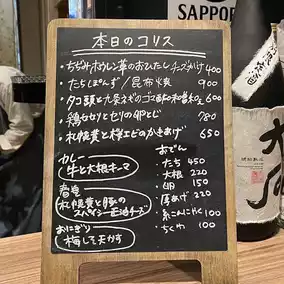 SAPPORO
本日のコリス
・ちぢみホウレン草のおひたしチーズがけ 400
・たちぽんず/昆布焼 900
・タコ頭と九条ネギのゴマ酢和え 600
・鶏セリとセリの卵とじ 780
・札幌黄と桜エビのかきあげ 650
カレー
牛と大根キーマ
春巻
札幌黄と豚のスパイシー正油チーズ
おにぎり
梅しそ天かす
おでん
・たち 450
・大根 220
・卵 150
・厚あげ 220
・糸こんにゃく 100
・ちくわ 100